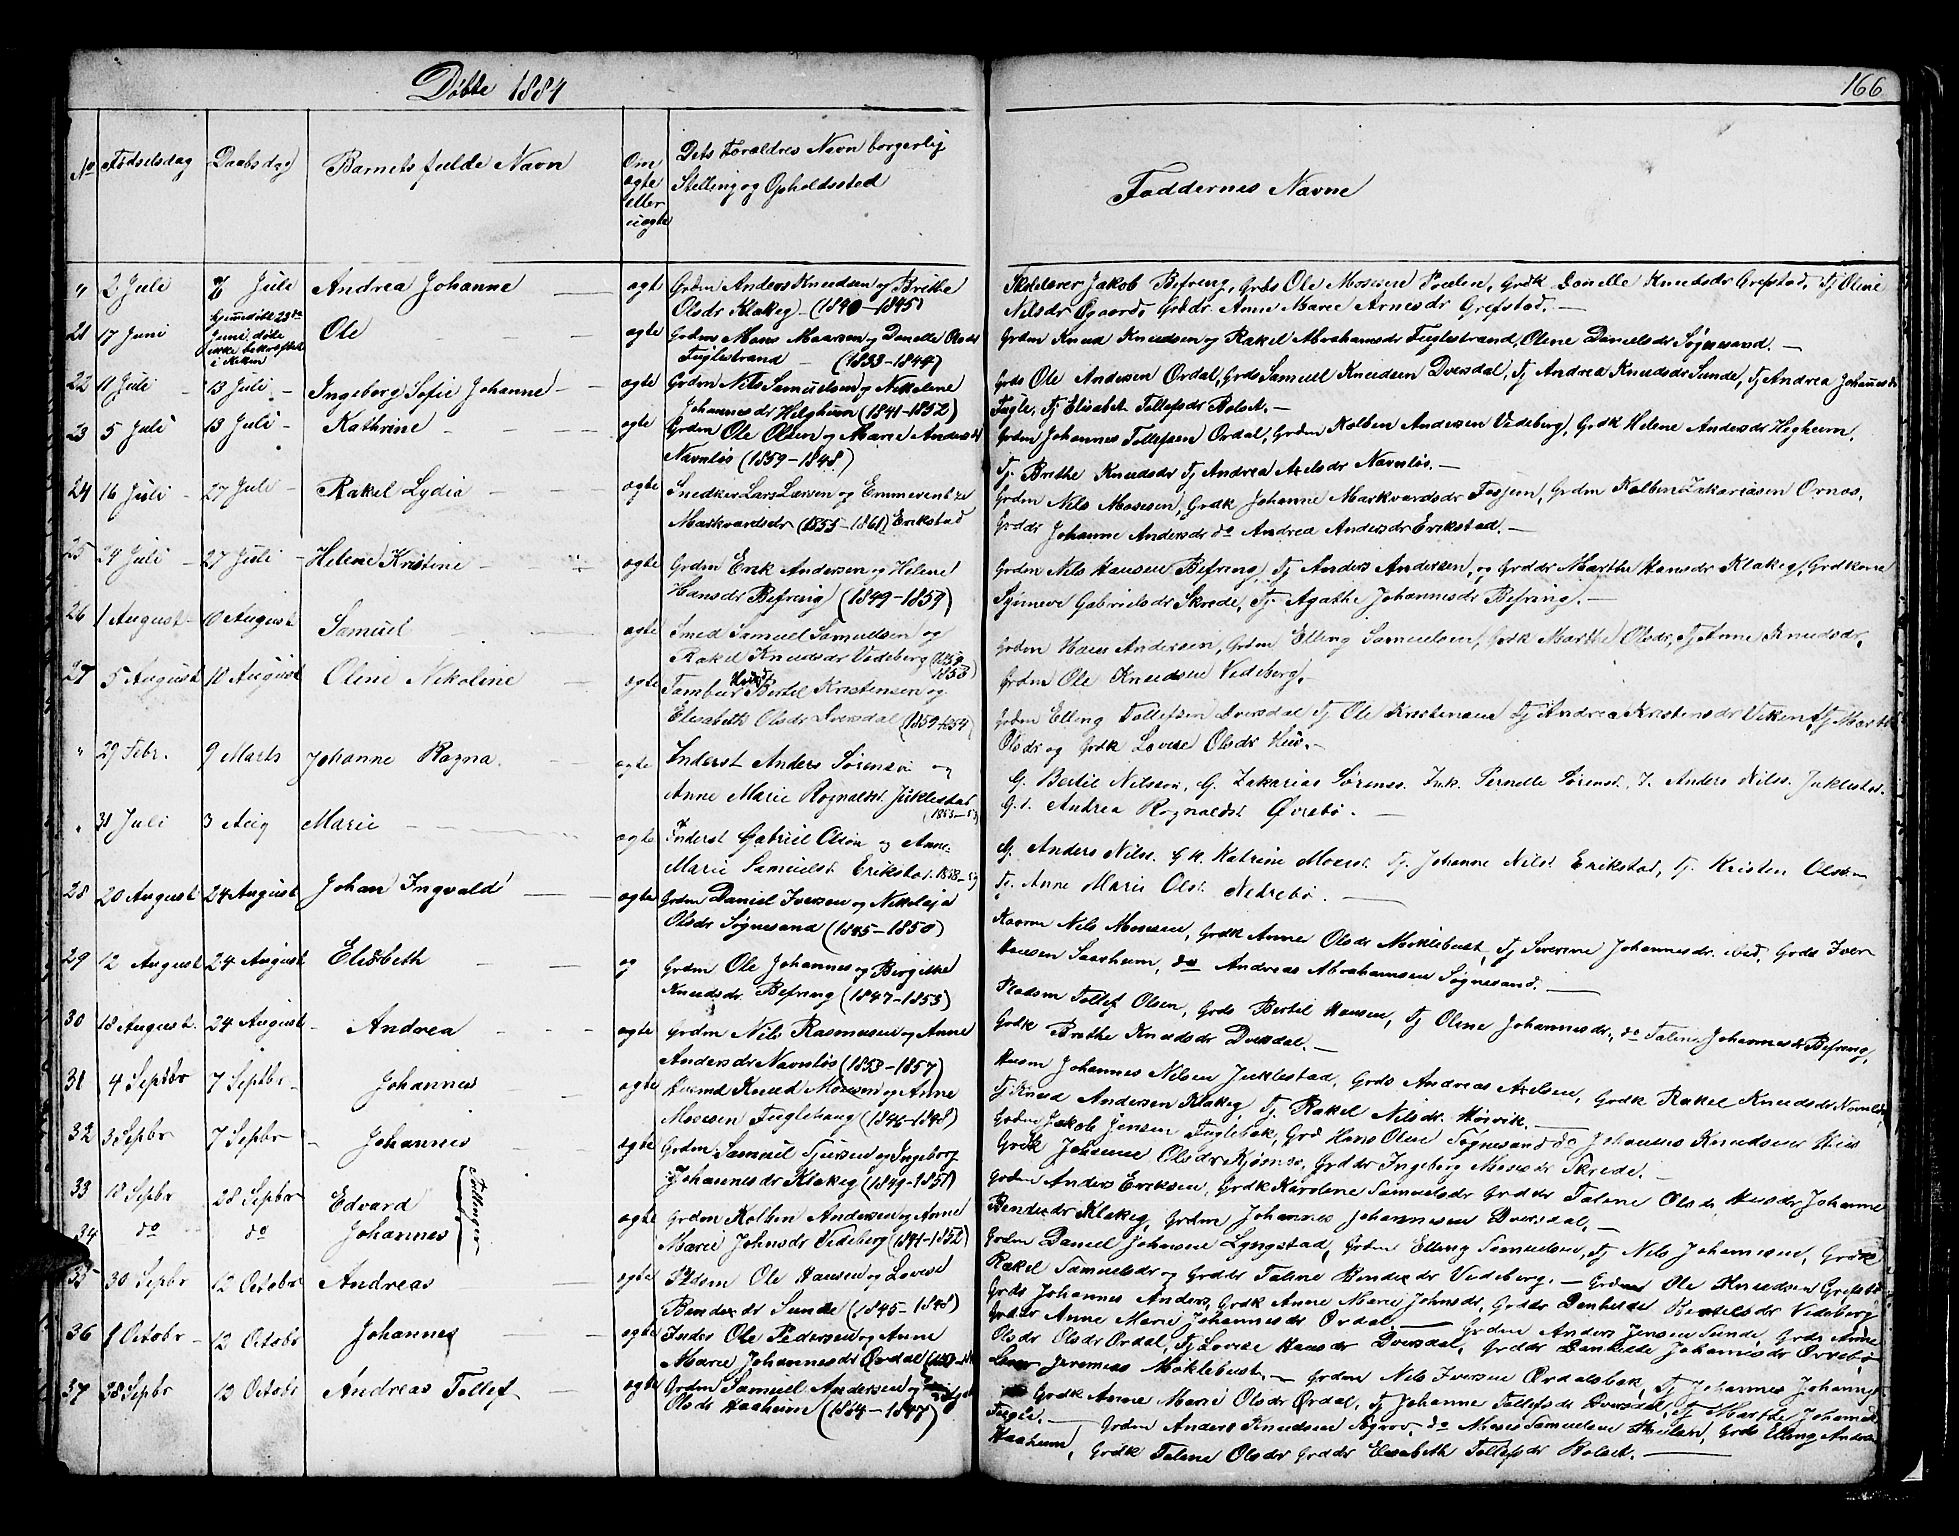 Döbte 1884
166
No
Födselsdag
Daabsdag
Barnets fulde Navn
Om
ægte
eller
uægte
Dets Forældres Navn borgerlig
Stelling og Opholdsstad
Faddernes Navne
" 2 Juli
6 Juli
Andrea Johanne
ægt
Grdm Anders Knudsen og Brithe
Olsdr Klakeg (1840-1845)
Jakob Befring, Grds Ole Mosesen Grdk Danelle Knudsdr Grefstad, Tj Oline
Nilsdr Grddr Anne Marie Arnesdr Grefstad.
21 17 Juni
Hjemdöbt 23de
Juni, döbt
ikke bekræftet
i Kirken
Ole
ægte
Grdm Mons Monsen og Danelle Olsdr
Fuglestrand (1833-1844)
Grdm Knud Knudsen og Rakel Abrahamsdr Fuglestrand, Olene Danielsdr Søgnesand.
22 11 Juli
13 Juli
Ingeborg Sofie Johanne
ægte
Grdm Nils Samuelsen og Nikoline
Johannesdr Helgheim (1841-1852)
Grds Ole Andersen Ordal, Grds Samuel Knudsen Dversdal, Tj Andrea Knudsdr Sunde, Tj Andrea Johannesdr
Fugle, Tj Elisabet Tollefsdr Bolset.
23 5 Juli
13 Juli
Kathrine
ægte
Grdm Ole Olsen og Marie Andersdr
Navnløs (1859-1848)
Grdm Johannes Tollefsen Ordal, Grdm Kolben Andersen Vedeberg, Grdk Helene Andersdr Hegheim,
Tj. Brithe Knudsdr Tj Andrea Axelsdr Navnløs.
24 16 Juli
27 Juli
Rakel Lydia
ægte
Snedker Lars Larsen og Emmerentze
Markvardsdr (1855-1861) Erikstad
Grdm Nils Mosesen, Grdk Johanne Markvardsdr Fosjem, Grdm Kolben Zakariasen Ornas,
Grddr Johanne Andersdr do Andrea Andersdr Erikstad.
25 24 Juli
27 Juli
Helene Kristine
ægte
Grdm Erik Andersen og Helene
Hansdr Befring (1849-1859)
Grdm Nils Hansen Befring, Tj Anders Andersen, og Grddr Marthe Hansdr Klakeg, Grdkona
Synneve Gabrielsdr Skrede, Tj. Agathe Johannesdr Befring.
26 1 August
10 August
Samuel
ægte
Smed Samuel Samuelsen og
Rakel Knudsdr Vedeberg (1859
1853)
Grdm Hans Andersen, Grdm Elling Samuelsen, Grdk Marthe Olsdr, Tj Anne Knudsdr,
Grdm Ole Knudsen Vedeberg.
27 5 August
10 August
Oline Nikoline
ægte
Tambur Bertil Kristensen og
Elisabeth Olsdr Dversdal (1859-1854)
Grdm Elling Tollefsen Dversdal Tj Ole Kristensen Tj Andrea Kristensdr Viken, Tj Marthe
Olsdr og Grdk Lovise Olsdr Hus.
" 29 Febr.
9 Marts
Johanne Ragna
ægte
Inderst Anders Sørensen og
Anne Marie Rognaldst. Juklestad
(1853-53)
G. Bertil Nilsson, G. Zakarias Sörens. Ink. Pernelle Sörensd. I. Anders Nilss. Juklestad.
G.d. Andrea Rognaldst Övrebö.
" 31 Juli
3 Aug
Marie
ægte
Inderst Gabriel Olson og Anne
Marie Samuelst Erikstad 1858-59
G. Anders Nilss. G.K. Katrine Mosest. Tj. Johanne Nilst Erikstad, Tj. Kristen Olson
Tj. Anne Marie Olst. Nedrebö.
28 20 August
24 August
Johan Ingvald
ægte
Grdm Daniel Iversen og Nikolaja
Olsdr Søgnesand (1845-1850)
Kaarm Nils Monsen, Grdk Anne Olsdr Møklebust, Tj Severine Johannesdr. ibid, Grds Iver
Hansen Saasheim, do Andreas Abrahamsen Søgnesand.
29 12 August
24 August
Elisbeth
æg
Grdm Ole Johannes og Birgitte
Knudsdr Befring (1847-1853)
Pladsm Tollef Olsen, Grds Bertil Hansen, Tj Oline Johannesdr, do Taline Johannesdr Befring,
Grdk Brithe Knudsdr Dversdal.
30 18 August
24 August
Andrea
ægte
Grdm Nils Rasmussen og Anne
Andersdr Navnløs (1853-1857)
Husm Johannes Nilsen Juklestad, Grds Andreas Axelsen, Grdk Rakel Knudsdr Navnløs,
Tj Knud Andersen Klakeg, Tj. Rakel Nilsdr. Morvik.
31 4 Septbr
7 Septbr
Johannes
ægte
Husmd Knud Mosesen og Anne
Mosesen Fuglehaug (1845-1848)
Grdm Jakob Jensen Fuglebak, Grd Hans Olsen Søgnesand do Johannes Knudsen Hus
Grdk Johanne Olsdr Kjøsnes, Grddr Ingeborg Mosesdr Skrede.
32 3 Sepbr
7 Sepbr
Johannes
ægte
Grdm Samuel Sjursen og Ingeborg
Johannesdr Klakeg (1849-1851)
Grdm Anders Eriksen, Grdk Karolene Samuelsdr Grddr Taline Olsdr, Husdr Johanne
Bendixdr Klakeg, Grdm Johannes Johannesen Dversdal.
33 18 Sepbr
28 Sepbr
Edvard
34 do
do
Johannes
Tvillinger
ægte
Grdm Kolben Andersen og Anne
Marie Johnsdr Vedeberg (1841-1852)
Grdm Daniel Johnsen Lyngstad, Grdm Elling Samuelsen, Tj Nils Johannesen, Grdk
Rakel Samuelsdr og Grddr Taline Bendixdr Vedeberg. Grdm Ole Knudsen Grefstad
Grds Johannes Anders, Grdk Anne Marie Johnsdr, Grddr Denkelde Bertelsdr Vedeberg
Grddr Anne Marie Johannesdr Ordal.
35 30 Sepbr
12 Octobr
Andreas
ægte
Pldsm Ole Hansen og Lovise
Bendixdr Sunde (1845-1848)
Grdm Anders Jensen Sunde, Grds Arne
Olsdr Olsdr Ordal, Tj Lovise Hansdr Dversdal, Grddr Denkelde Johannesdr Övrebö
Jeremias Møklebust.
36 8 Octobr
12 Octobr
Johannes
ægte
Inders Ole Pedersen og Anne
Marie Johannesdr Ørdal
Grdm Nils Iversen Ørdalsbak, Tj Johannes Johannes
Grdk Anne Marie Olsdr Ørdal, Tj Johannes Tollefsdr Dversdal, Tj Marthe Johannes
Fugle.
37 28 Sepbr
12 Octobr
Andreas Tollef
ægte
Grdm Samuel Andersen og
Olsdr Haaheim (1844-1847)
Grdm Anders Knudsen Søgnes, do Moses Samuelsen Grds Elling Anders
Haaheim, Grdk Taline Olsdr Grddr Elisabeth Tollefsdr Bolset.